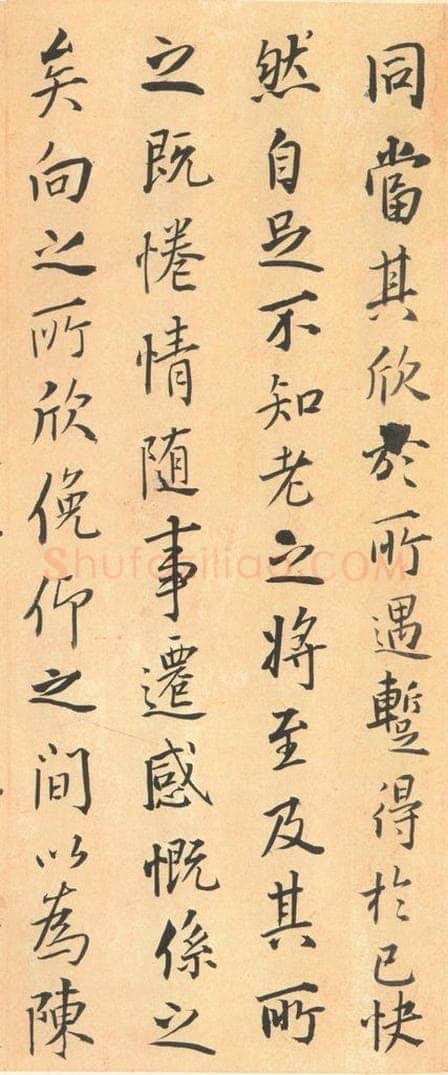 同當其欣於所遇暫得於己快
然自足不知老之將至及其所
之既惓情随事遷感慨係之
矣向之所欣俛仰之間以為陳
Shufaziliao.COM